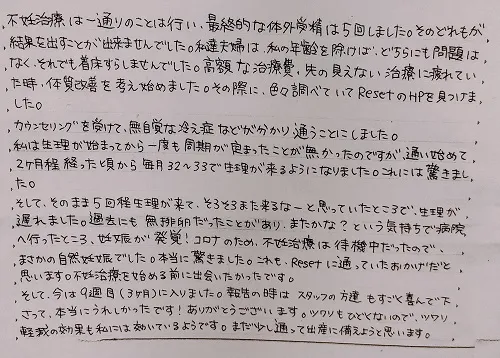 不妊治療は一通りのことは行い、最終的な体外受精は5回しました。そのどれもが
結果を出すことが出来ませんでした。私達夫婦は、私の年齢を除けば、どちらにも問題は
なく、それでも着床すらしませんでした。高額な治療費、先の見えない治療に疲れてい
た時、体質改善を考え始めました。その際に、色々調べていてResetのHPを見つけま
した。
カウンセリングを受けて、無自覚な冷え症などが分かり、通うことにしました。
私は生理が始まってから一度も周期が定まったことが無かったのですが、通い始めて
2ヶ月程経った頃から毎月32〜33で生理が来るようになりました。これには驚きまし
た。
そして、そのまま5回程生理が来て、そろそろまた来るなーと思っていたところで、生理が
遅れました。過去にも無排卵だったことがあり、またかな？という気持ちで病院
へ行ったところ、妊娠が発覚！コロナのため、不妊治療は待機中だったので、
まさかの自然妊娠でした。本当に驚きました。これも、Resetに通っていたおかげだと
思います。不妊治療を始める前に出会いたかったです。
そして、今は9週目(3ヶ月)に入りました。報告の時はスタッフの方達もすごく喜んで下
さって、本当にうれしかったです！ありがとうございます。ツワリもひどくないので、ツワリ
軽減の効果も私には効いているようです。まだ少し通って出産に備えようと思います。